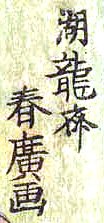 湖龍齋
春廣画